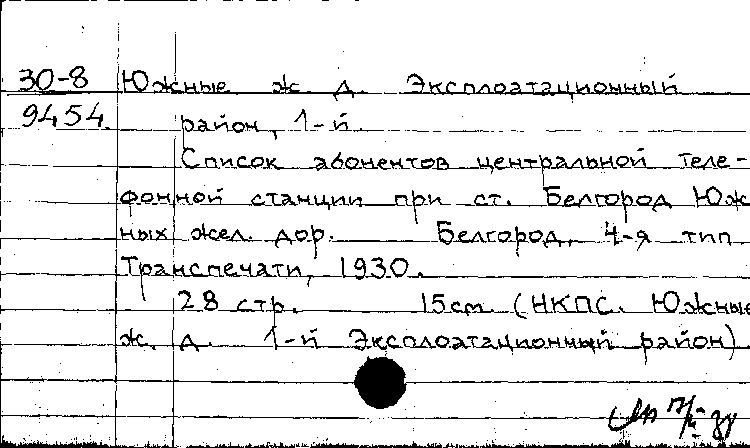 30-8 Южные ж. д. Эксплоатационный
9454. район, 1-й
Список абонентов центральной теле-
фонной станции при ст. Белгород Юж
ных жел. дор. Белгород, 4-я тип
Транспечати, 1930.
28 стр. 15см. (НКПС. Южные
ж. д. 1-й Эксплоатационный район)